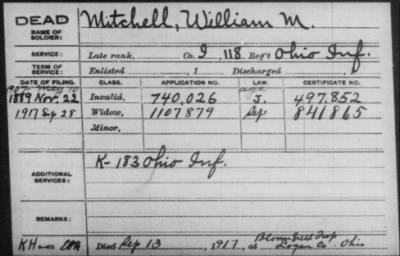 DEAD
NAME OF SOLDIER: Mitchell, William M.
SERVICE: Late rank, Co. I, 118 Reg't Ohio Inf.
TERM OF SERVICE: Enlisted , 1 Discharged , 1
DATE OF FILING. CLASS. APPLICATION NO. LAW. CERTIFICATE NO.
1907 May 10 age
1889 Nov. 22 Invalid, 740,026 J. 497,852
1917 Sep 28 Widow, 1107879 Sep 841865
Minor,
ADDITIONAL SERVICES: K-183 Ohio Inf.
REMARKS:
Died Sep 13, 1917, at Bloomfield Twp Logan Co. Ohio